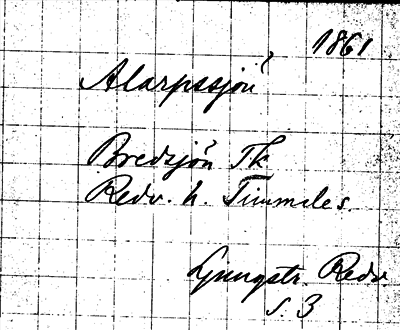 1861
Alarpssjön
Bredsjön Tk
Redv. h. Timmeles.
Ljungstr. Redv.
s. 3